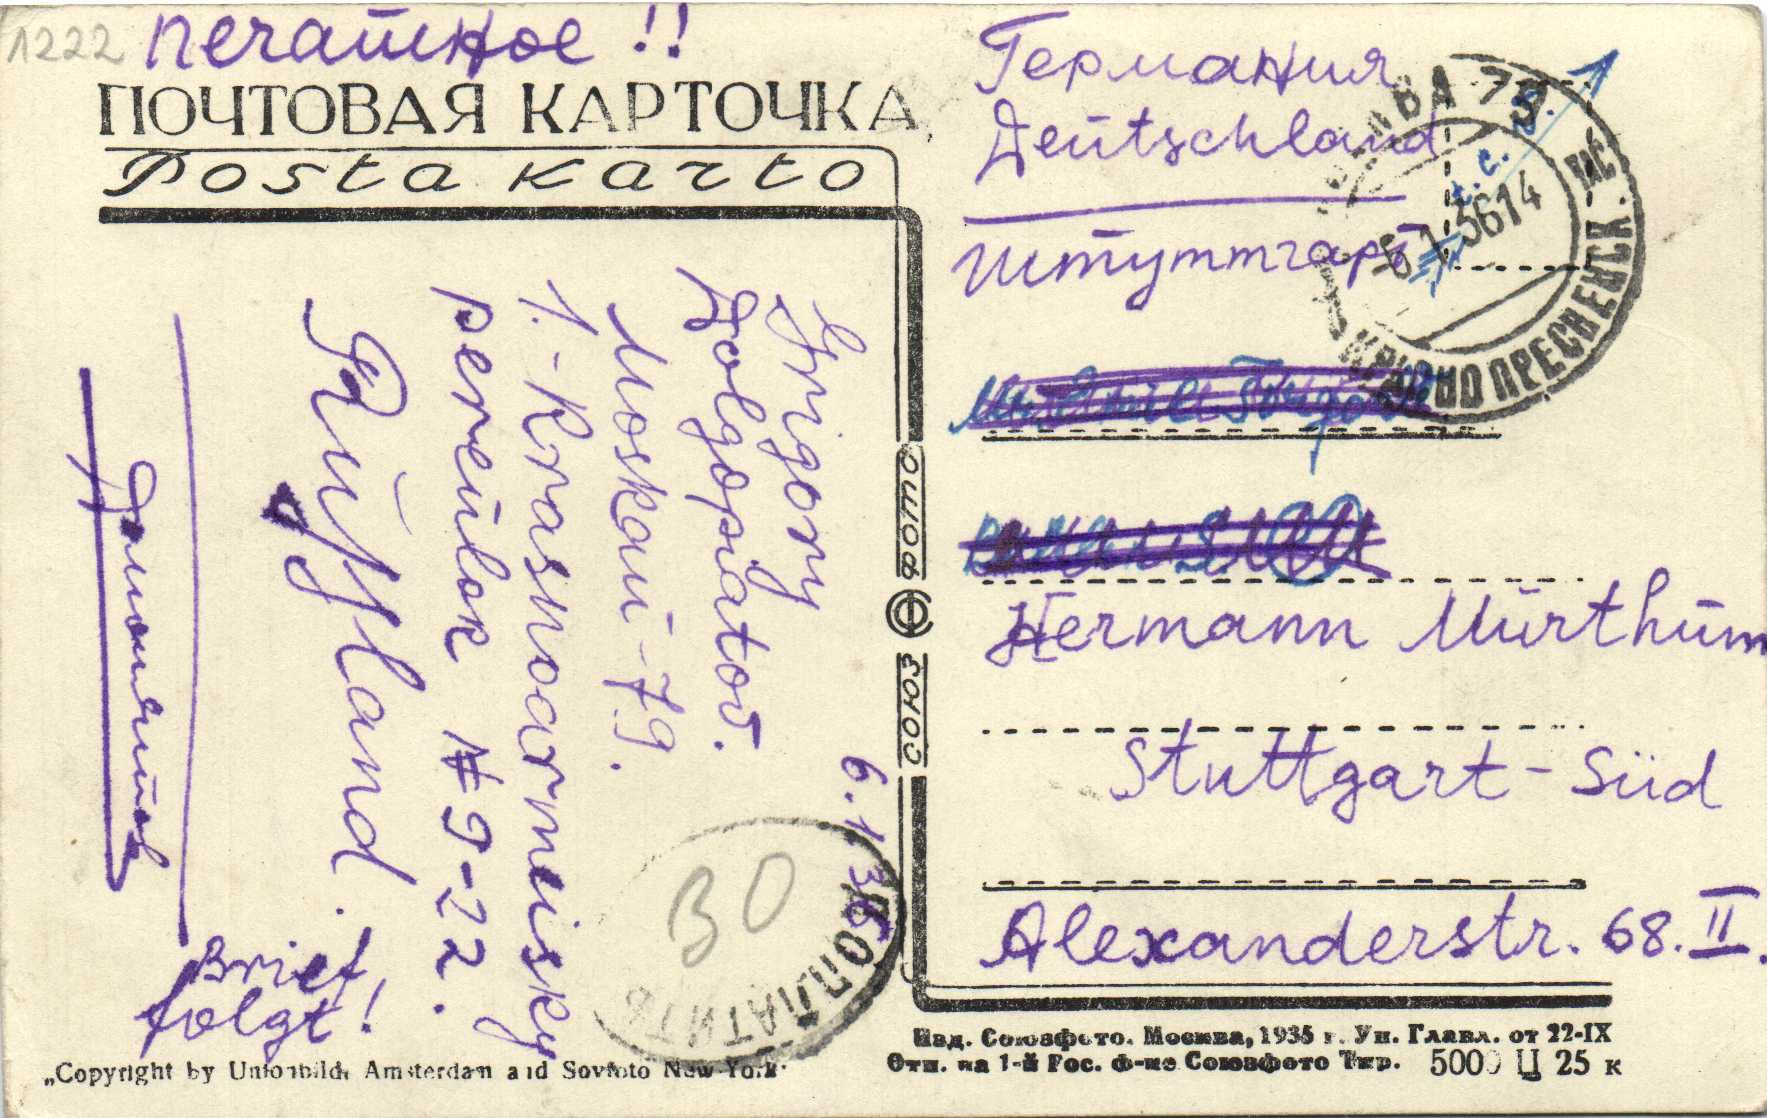 1222 печатное !!
ПОЧТОВАЯ КАРТОЧКА
Posta karto
Grigory
Dolgopiatov.
Moskau-79.
1.-Krasnoarmeisky
pereulok № 9-22.
Rußland.
Brief
folgt!
6.1.36
30
ДОПЛАТИТЬ
СОЮЗ ФОТО
Германия
Deutschland
Штуттгарт
МОСКВА 79
-6 1 3614
КРАСНОПРЕСНЕНСК.
Hermann Mürthum
Stuttgart-Süd
Alexanderstr. 68. II.
Изд. Союзфото. Москва, 1935 г. Уп. Главл. от 22-IX
Отп. на 1-й Рос. ф-ке Союзфото Тир. 5000 Ц 25 к
„Copyright by Unionbild, Amsterdam and Sovfoto New-York"